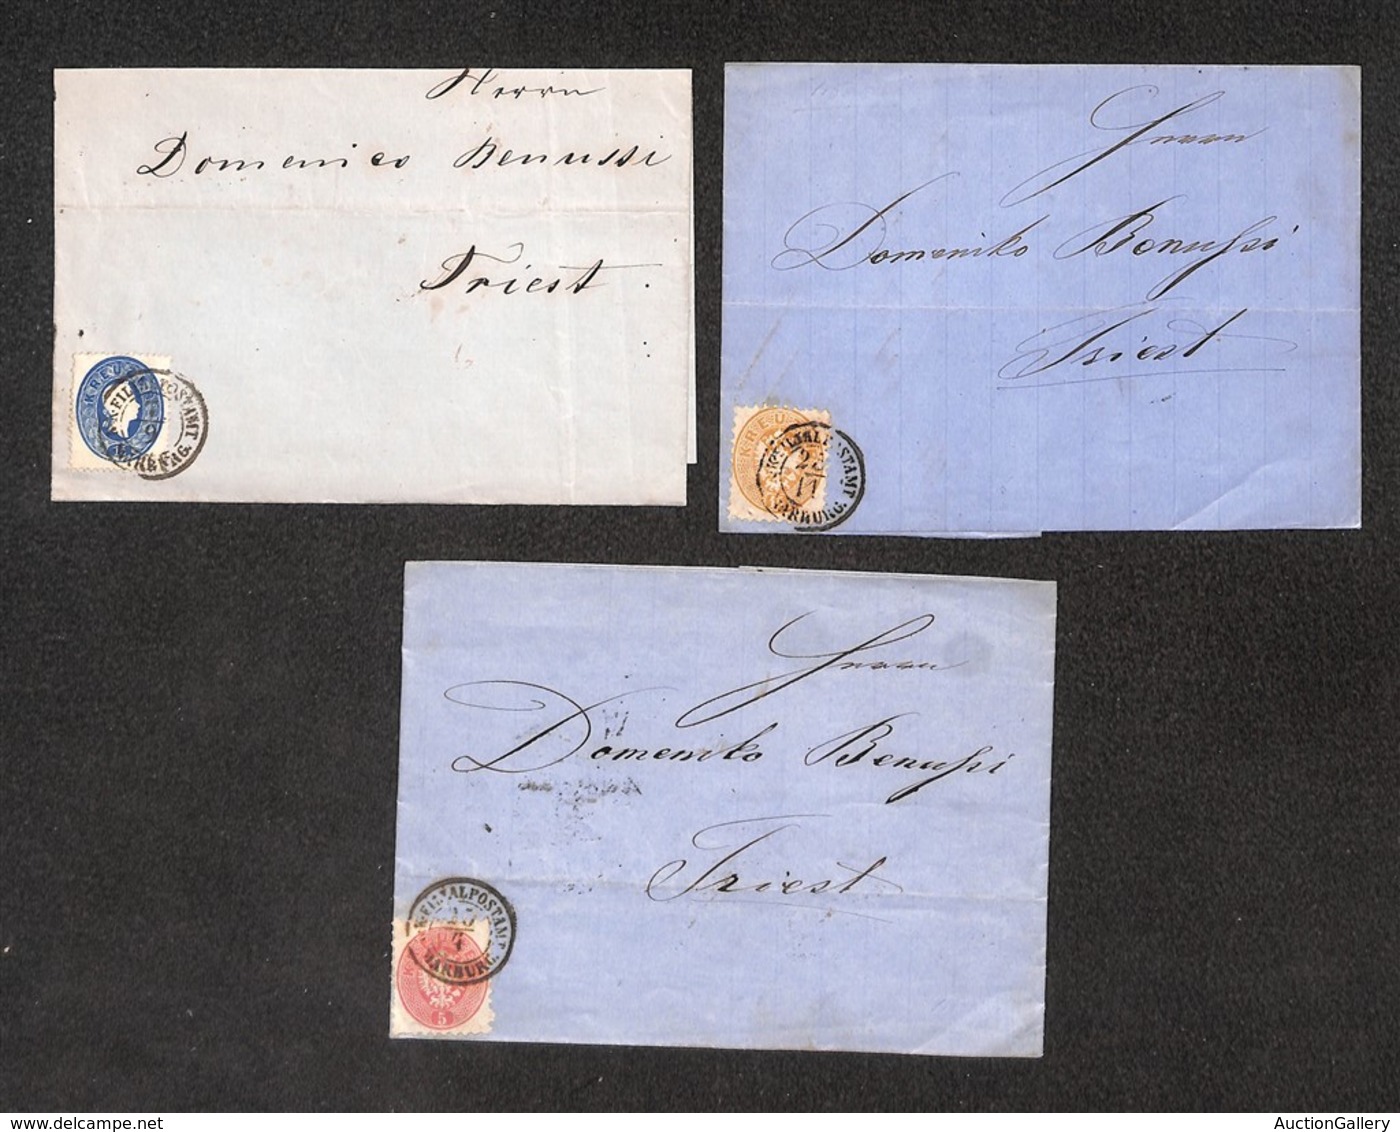 Herrn
Domenico Benussi
Triest.
KREUZER
K.K. FILIALPOSTAMT
MARBURG.
Herrn
Domeniko Benussi
Triest
KREU
K.K. FILIALPOSTAMT
23
11
MARBURG.
Herrn
Domeniko Benussi
Triest
K.K. FILIALPOSTAMT
MARBURG.
5
delcampe.net
AuctionGallery